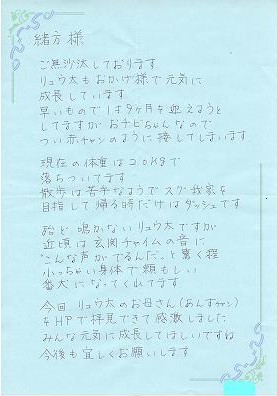 緒方様
ご無沙汰しております
リュウ太もおかげ様で元気に
成長しています
早いもので1才9ヶ月を迎えようと
してますがおチビちゃんなので
つい赤チャンのように接してしまいます
現在の体重は20kgで
落ちついてます
散歩は苦手なようでスグ我家を
目指して帰る時だけはダッシュです
殆ど鳴かないリュウ太ですが
近頃は玄関チャイムの音に
“こんな声がでるんだ〟と驚く程
小っちゃい身体で頼もしい
番犬になってくれてます
今回 リュウ太のお母さん(あんずチャン)
をHPで拝見できて感激しました
みんな元気に成長してほしいですね
今後も宜しくお願いします